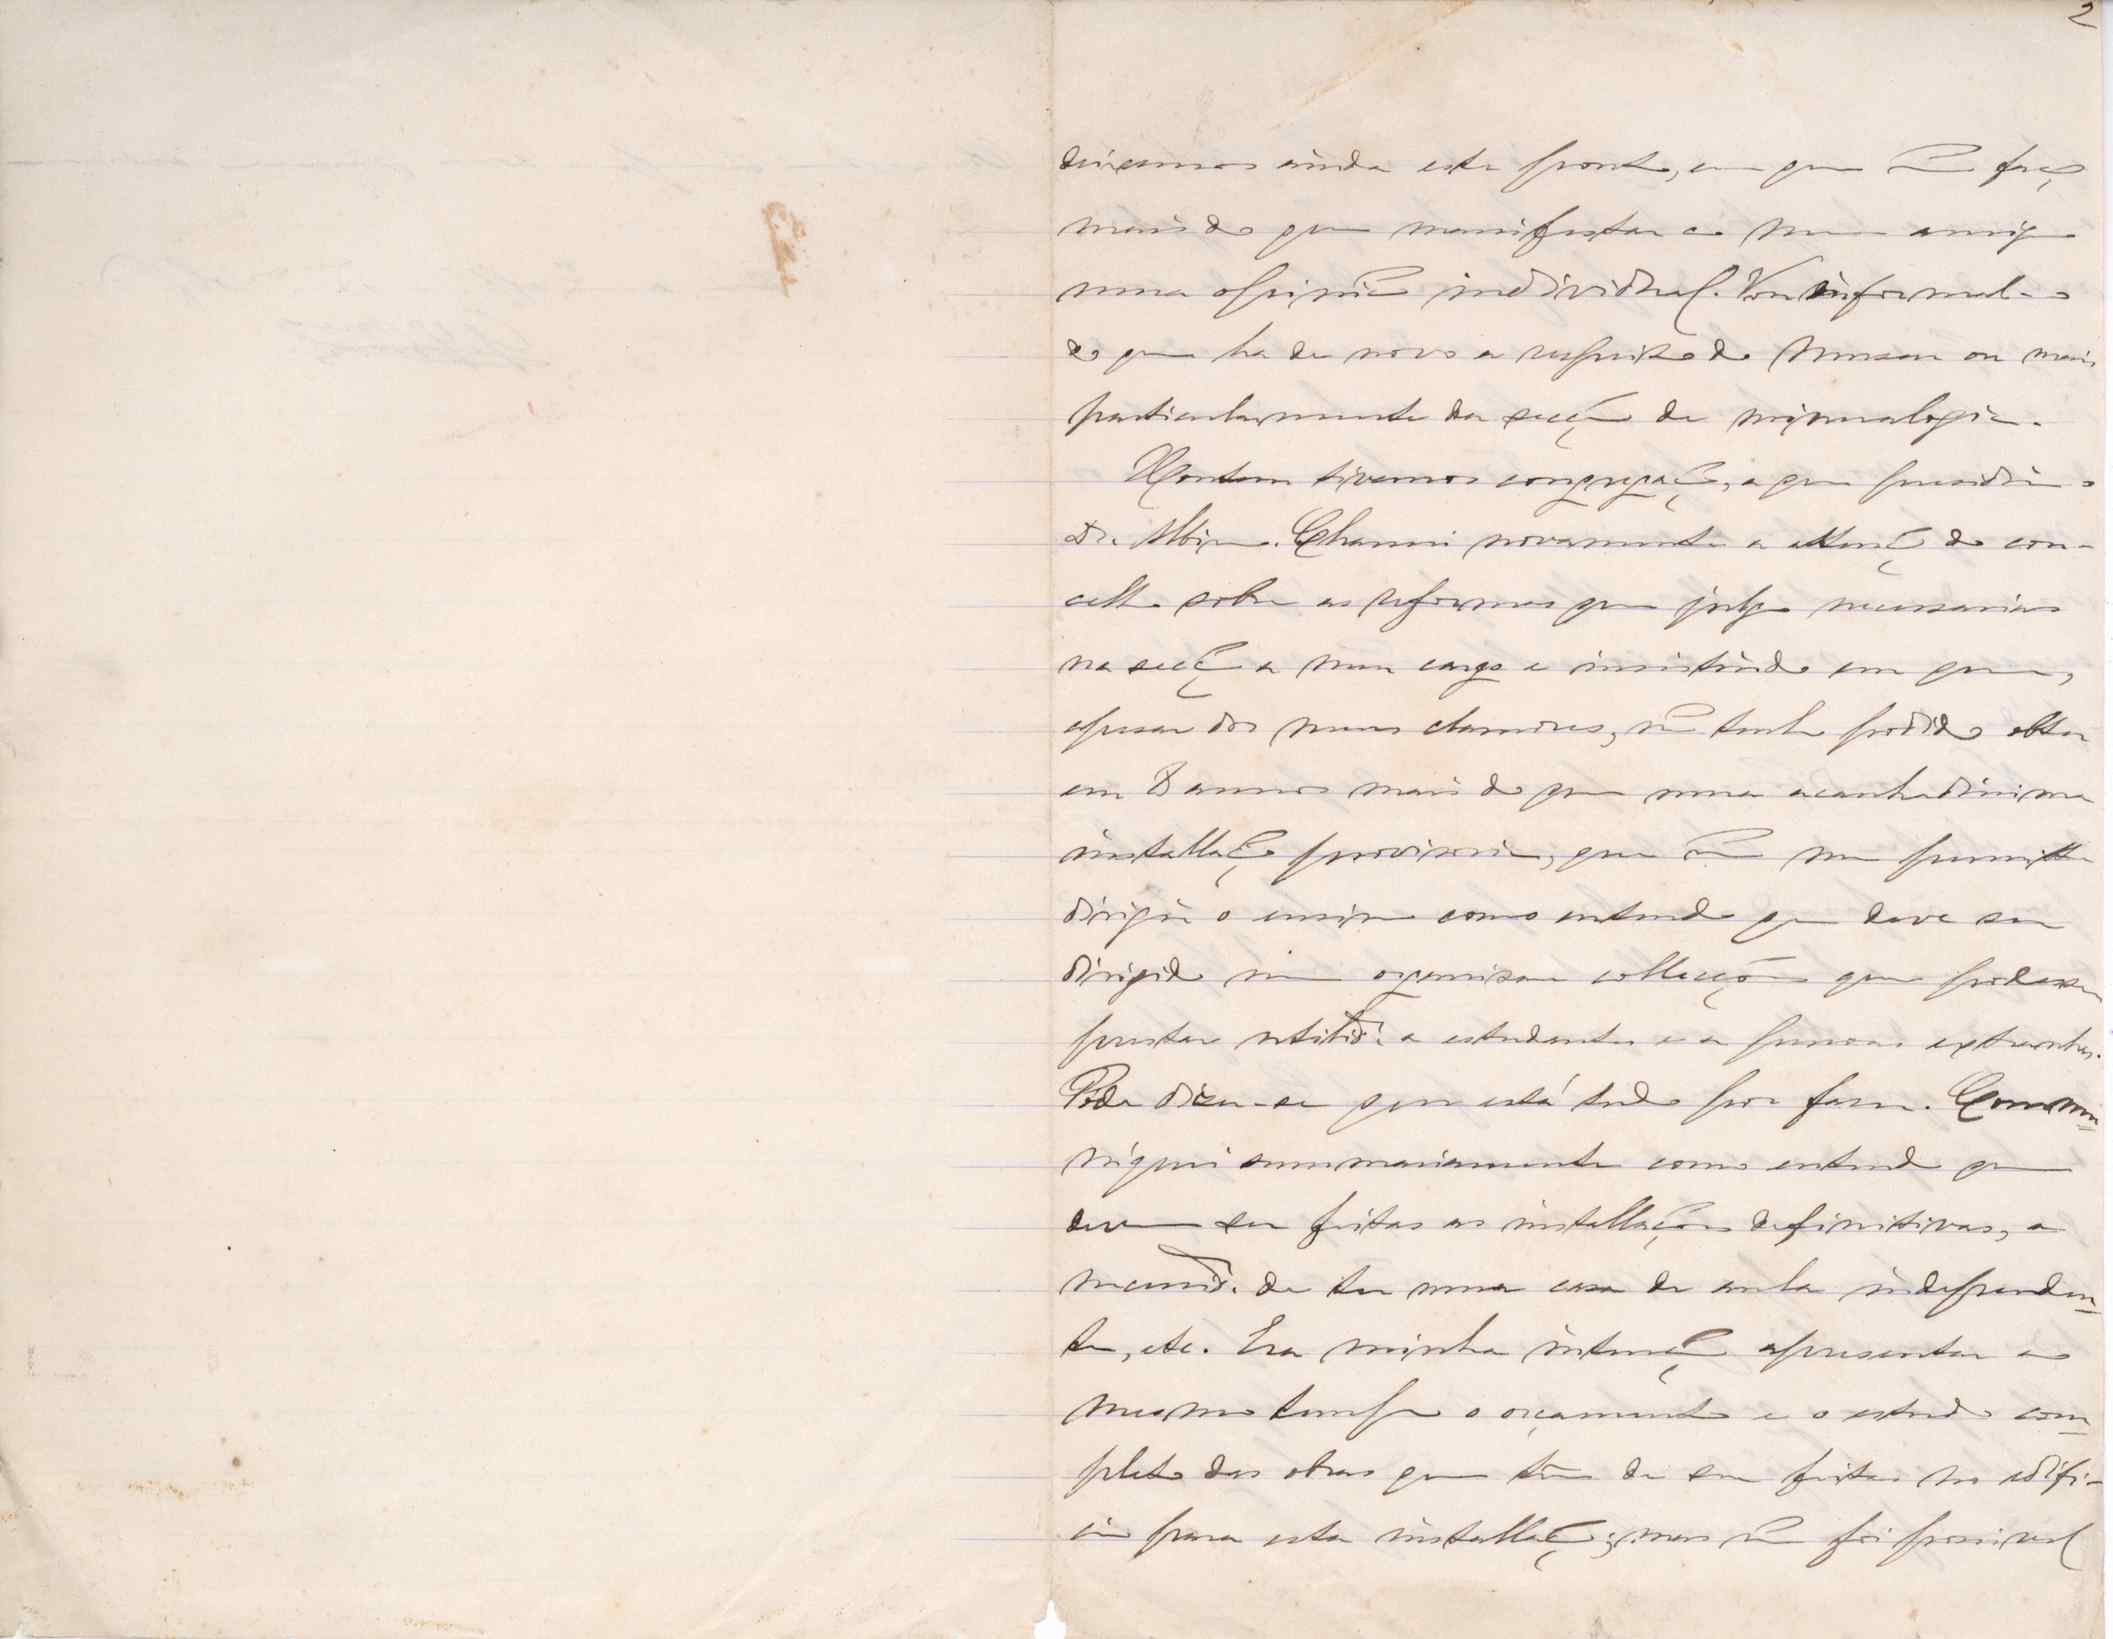 2
deixemos ainda este ponto, em que não faço
mais do que manifestar ao meu amigo
uma opinião individual. Vou informal-o
do que ha de novo a respeito do Museu ou mais
particularmente da secção de mineralogia.
Hontem tivemos congregação, a que presidiu o
Dr. Albino. Chamei novamente a attenção do con-
celho sobre as reformas que julgo necessarias
na secção a meu cargo e insistindo em que,
apesar dos meus clamores, não tenho podido obter
em annos mais do que uma acanhadissima
installação provisoria, que não me permitte
dirigir o ensino como entendo que deve ser
dirigido nem organisar collecções que podessem
prestar utilide. a estudantes e a pessoas extranhas.
Póde dizer-se que está tudo por fazer. Commu-
niquei summariamente como entendo que
devem ser feitas as installações definitivas, a
necesside. de ter uma casa de aula independen-
te, etc. Era minha intenção apresentar ao
mesmo tempo o orçamento e o estudo com-
pleto das obras que têm de ser feitas no edifi-
cio para esta installação; mas não foi possivel